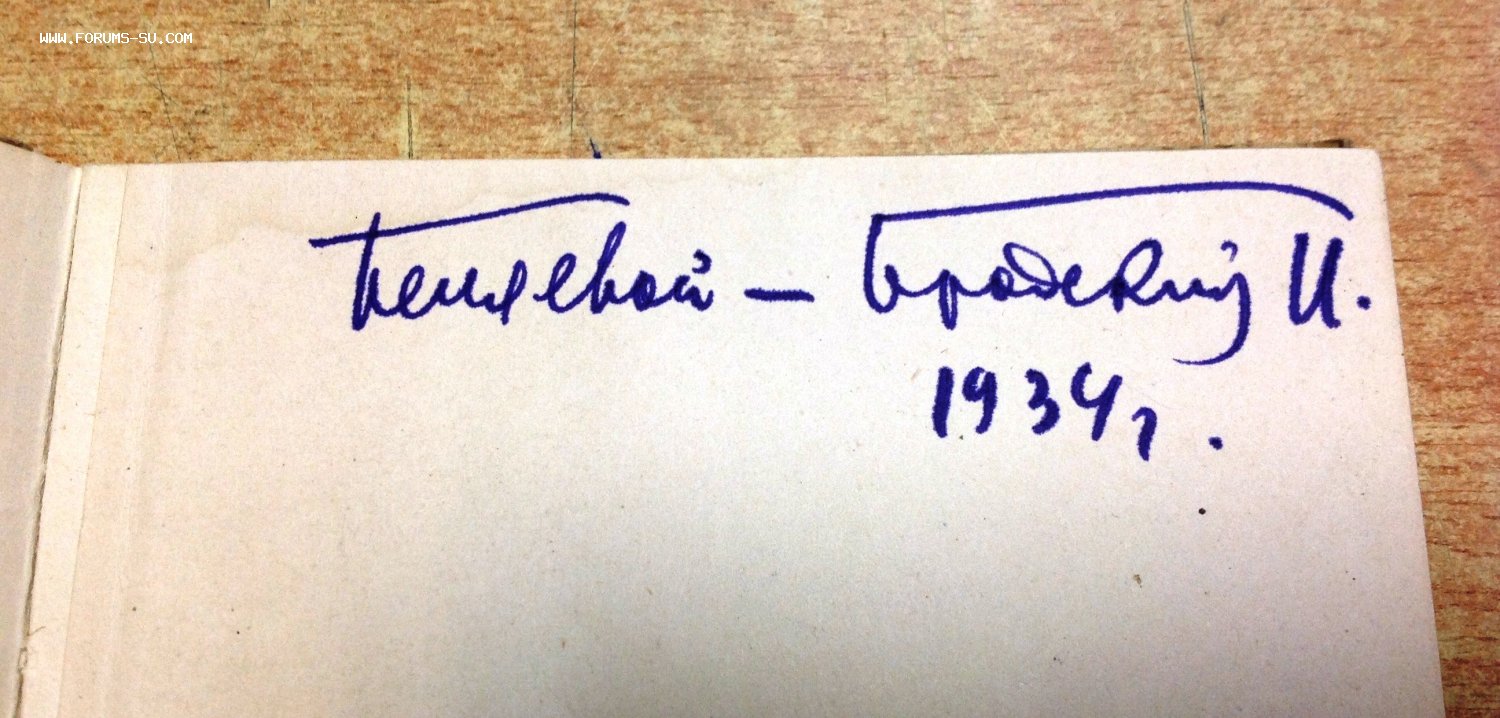 WWW.FORUMS-SU.COM
Беляевой — Бродский И.
1934 г.